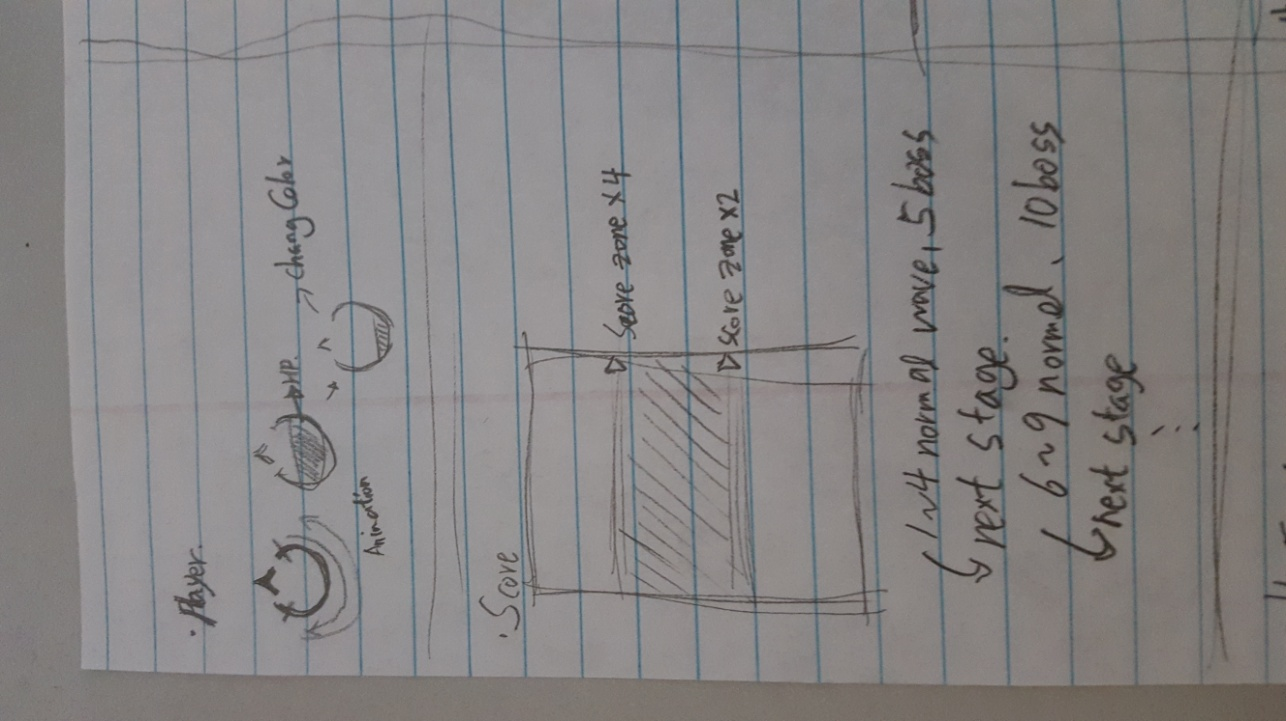 · Player.
HP. → Chang Color
Animation
· Score
Score zone x4
Score zone x2
↳ 1~4 normal wave, 5 boss
↳ next stage.
↳ 6~9 normal、10 boss
↳ next stage
⋮